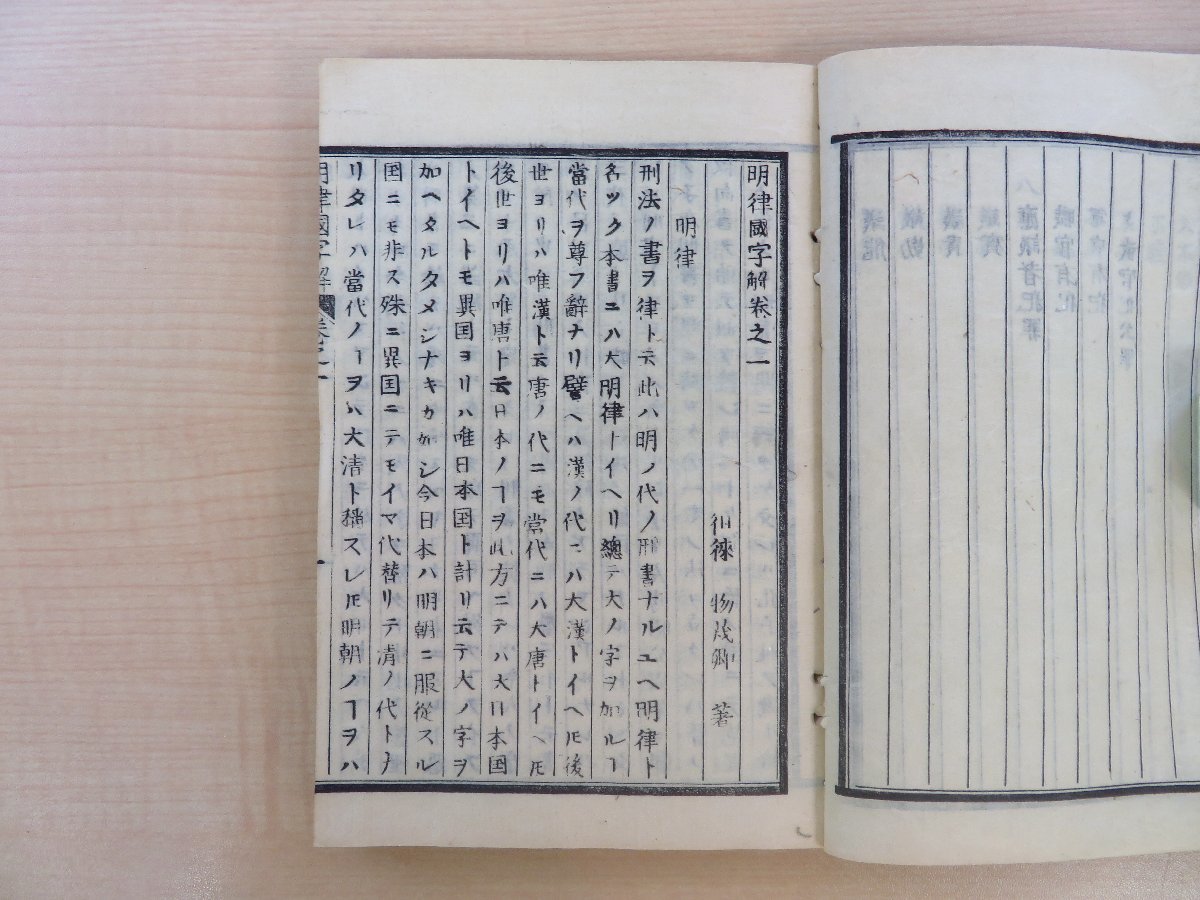 明律國字解卷之一
徂徠 物茂卿 著
明律
刑法ノ書ヲ律ト云此ハ明ノ代ノ刑書ナルユヘ明律ト
名ツク本書ニハ大明律トイヘリ總テ大ノ字ヲ加ルヿ
當代ヲ尊フ辭ナリ譬ヘハ漢ノ代ニハ大漢トイヘ𪜈後
世ヨリハ唯漢ト云唐ノ代ニモ當代ニハ大唐トイヘ𪜈
後世ヨリハ唯唐ト云日本ノヿヲ此方ニテハ大日本国
トイヘトモ異国ヨリハ唯日本国ト計リ云テ大ノ字ヲ
加ヘタルタメシナキカ如シ今日本ハ明朝ニ服從スル
国ニモ非ス殊ニ異国ニテモイマ代替リテ清ノ代トナ
リタレハ當代ノヿヲハ大清ト稱スレ𪜈明朝ノヿヲハ
明律國字解 卷之一 一